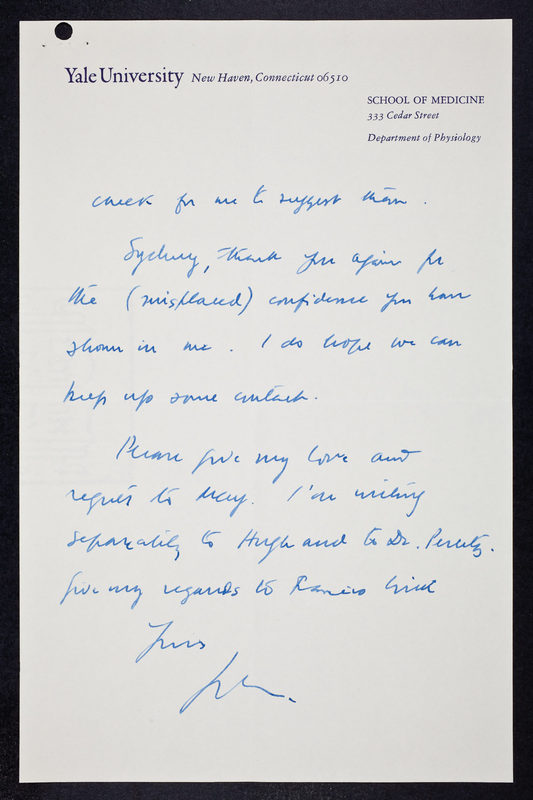 Yale University New Haven, Connecticut 06510
SCHOOL OF MEDICINE
333 Cedar Street
Department of Physiology
cheek for me to suggest them.
Sydney, thank you again for
the (misplaced) confidence you have
shown in me. I do hope we can
keep up some contact.
Please give my love and
regrets to May. I'm writing
separately to Hugh and to Dr. Perutz.
Give my regards to Francis Crick
Yours
John.